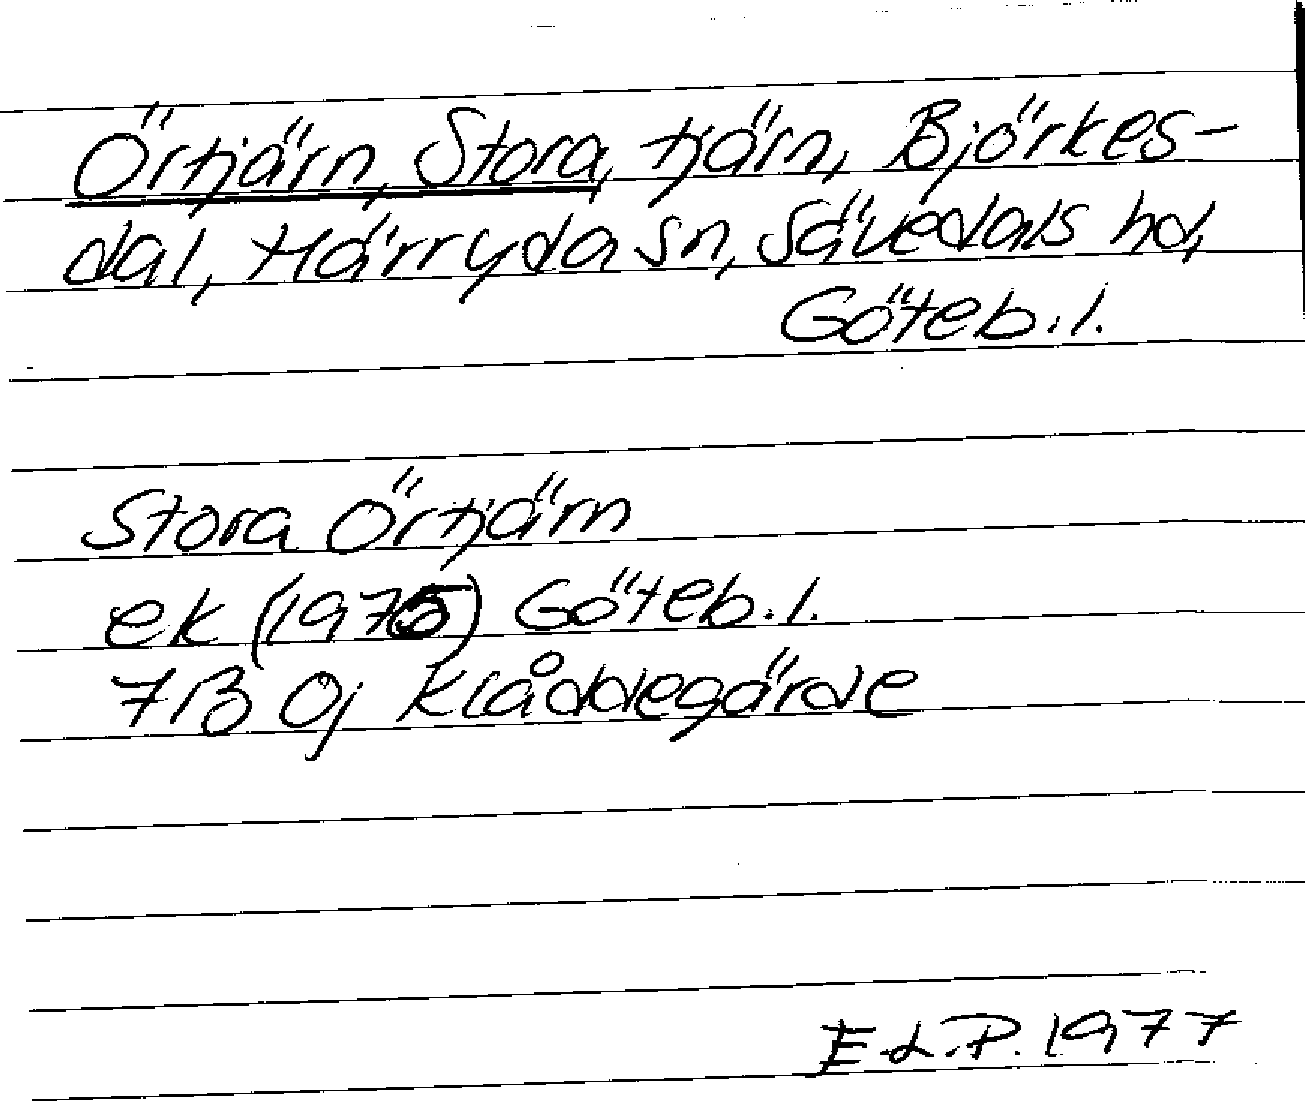 Örtjärn, Stora, tjärn, Björkes-
dal, Härryda sn, Sävedals hd,
Göteb.l.
Stora Örtjärn
ek (1975) Göteb.l.
7B 0j Klåddegärde
E.L.P. 1977